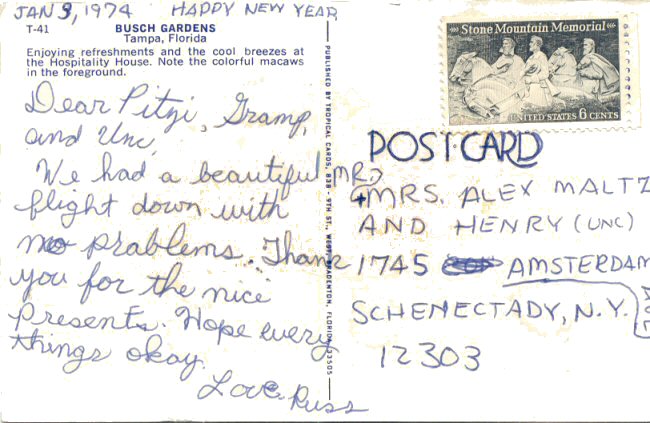 JAN 3, 1974 HAPPY NEW YEAR
T-41 BUSCH GARDENS
Tampa, Florida
Enjoying refreshments and the cool breezes at
the Hospitality House. Note the colorful macaws
in the foreground.
Dear Pitzi, Gramp,
and Unc,
We had a beautiful
flight down with
no prablems. Thank
you for the nice
presents. Hope every
things okay.
Love Russ
PUBLISHED BY TROPICAL CARDS, 838 - 9TH ST., WEST, BRADENTON, FLORIDA 33505
Stone Mountain Memorial
UNITED STATES 6 CENTS
POSTCARD
MR.
+MRS. ALEX MALTZ
AND HENRY (UNC)
1745 AMSTERDAM
SCHENECTADY, N.Y.
12303